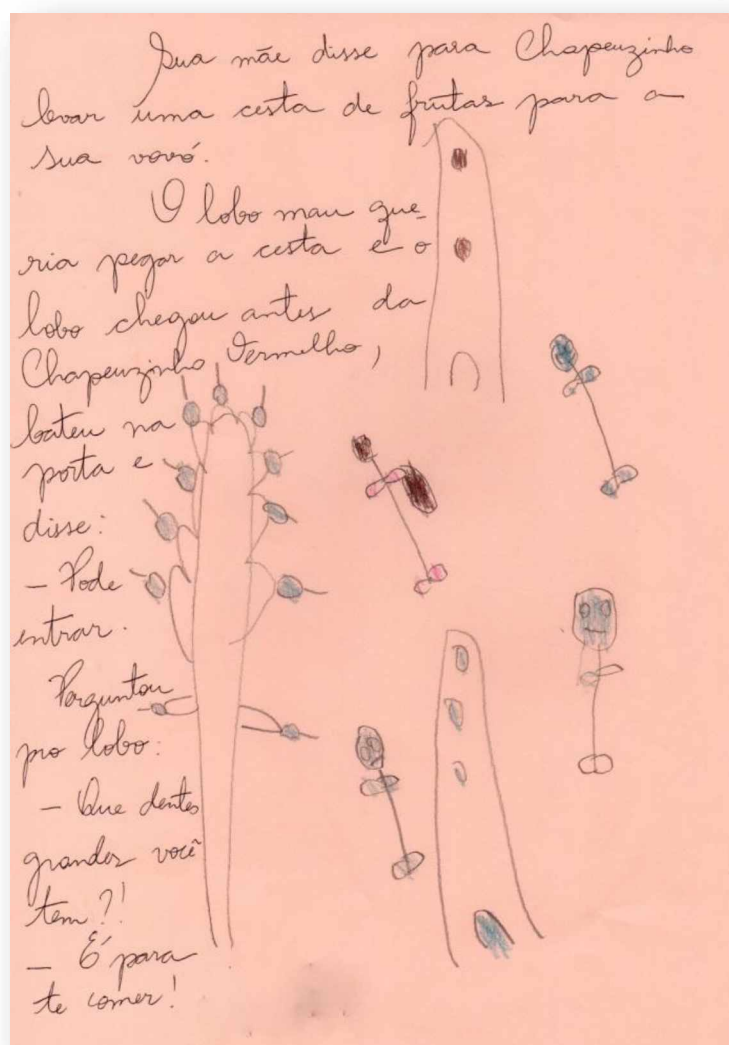 Sua mãe disse para Chapeuzinho
levar uma cesta de frutas para a
sua vovó.
O lobo mau que-
ria pegar a cesta e o
lobo chegou antes da
Chapeuzinho Vermelho,
bateu na
porta e
disse:
- Pode
entrar.
Perguntou
pro lobo:
- Que dentes
grandes você
tem?!
- É para
te comer!